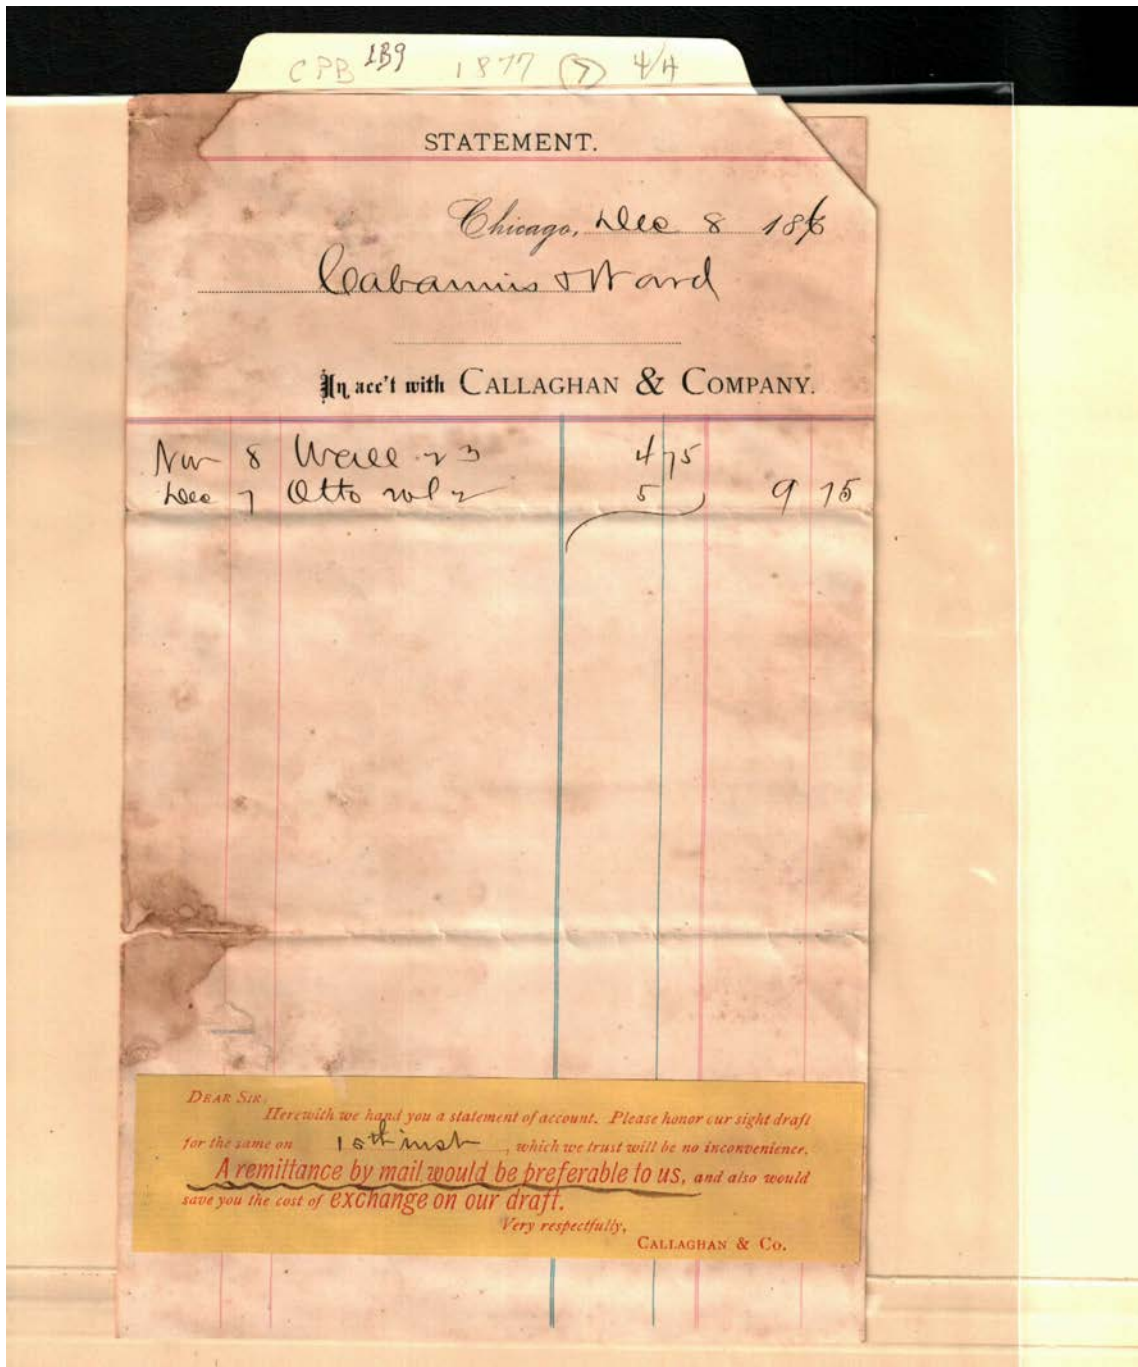 CPB LB9 1877 (7) 4/4
STATEMENT.
Chicago, Dec 8 18
Cabaniss & Ward
In acc't with CALLAGHAN & COMPANY.
Nov 8 Wall 23 4 75
Dec 7 Otto 5 9 75
DEAR SIR:
Herewith we hand you a statement of account. Please honor our sight draft
for the same on 15th inst, which we trust will be no inconvenience.
A remittance by mail would be preferable to us, and also would
save you the cost of exchange on our draft.
Very respectfully,
CALLAGHAN & CO.